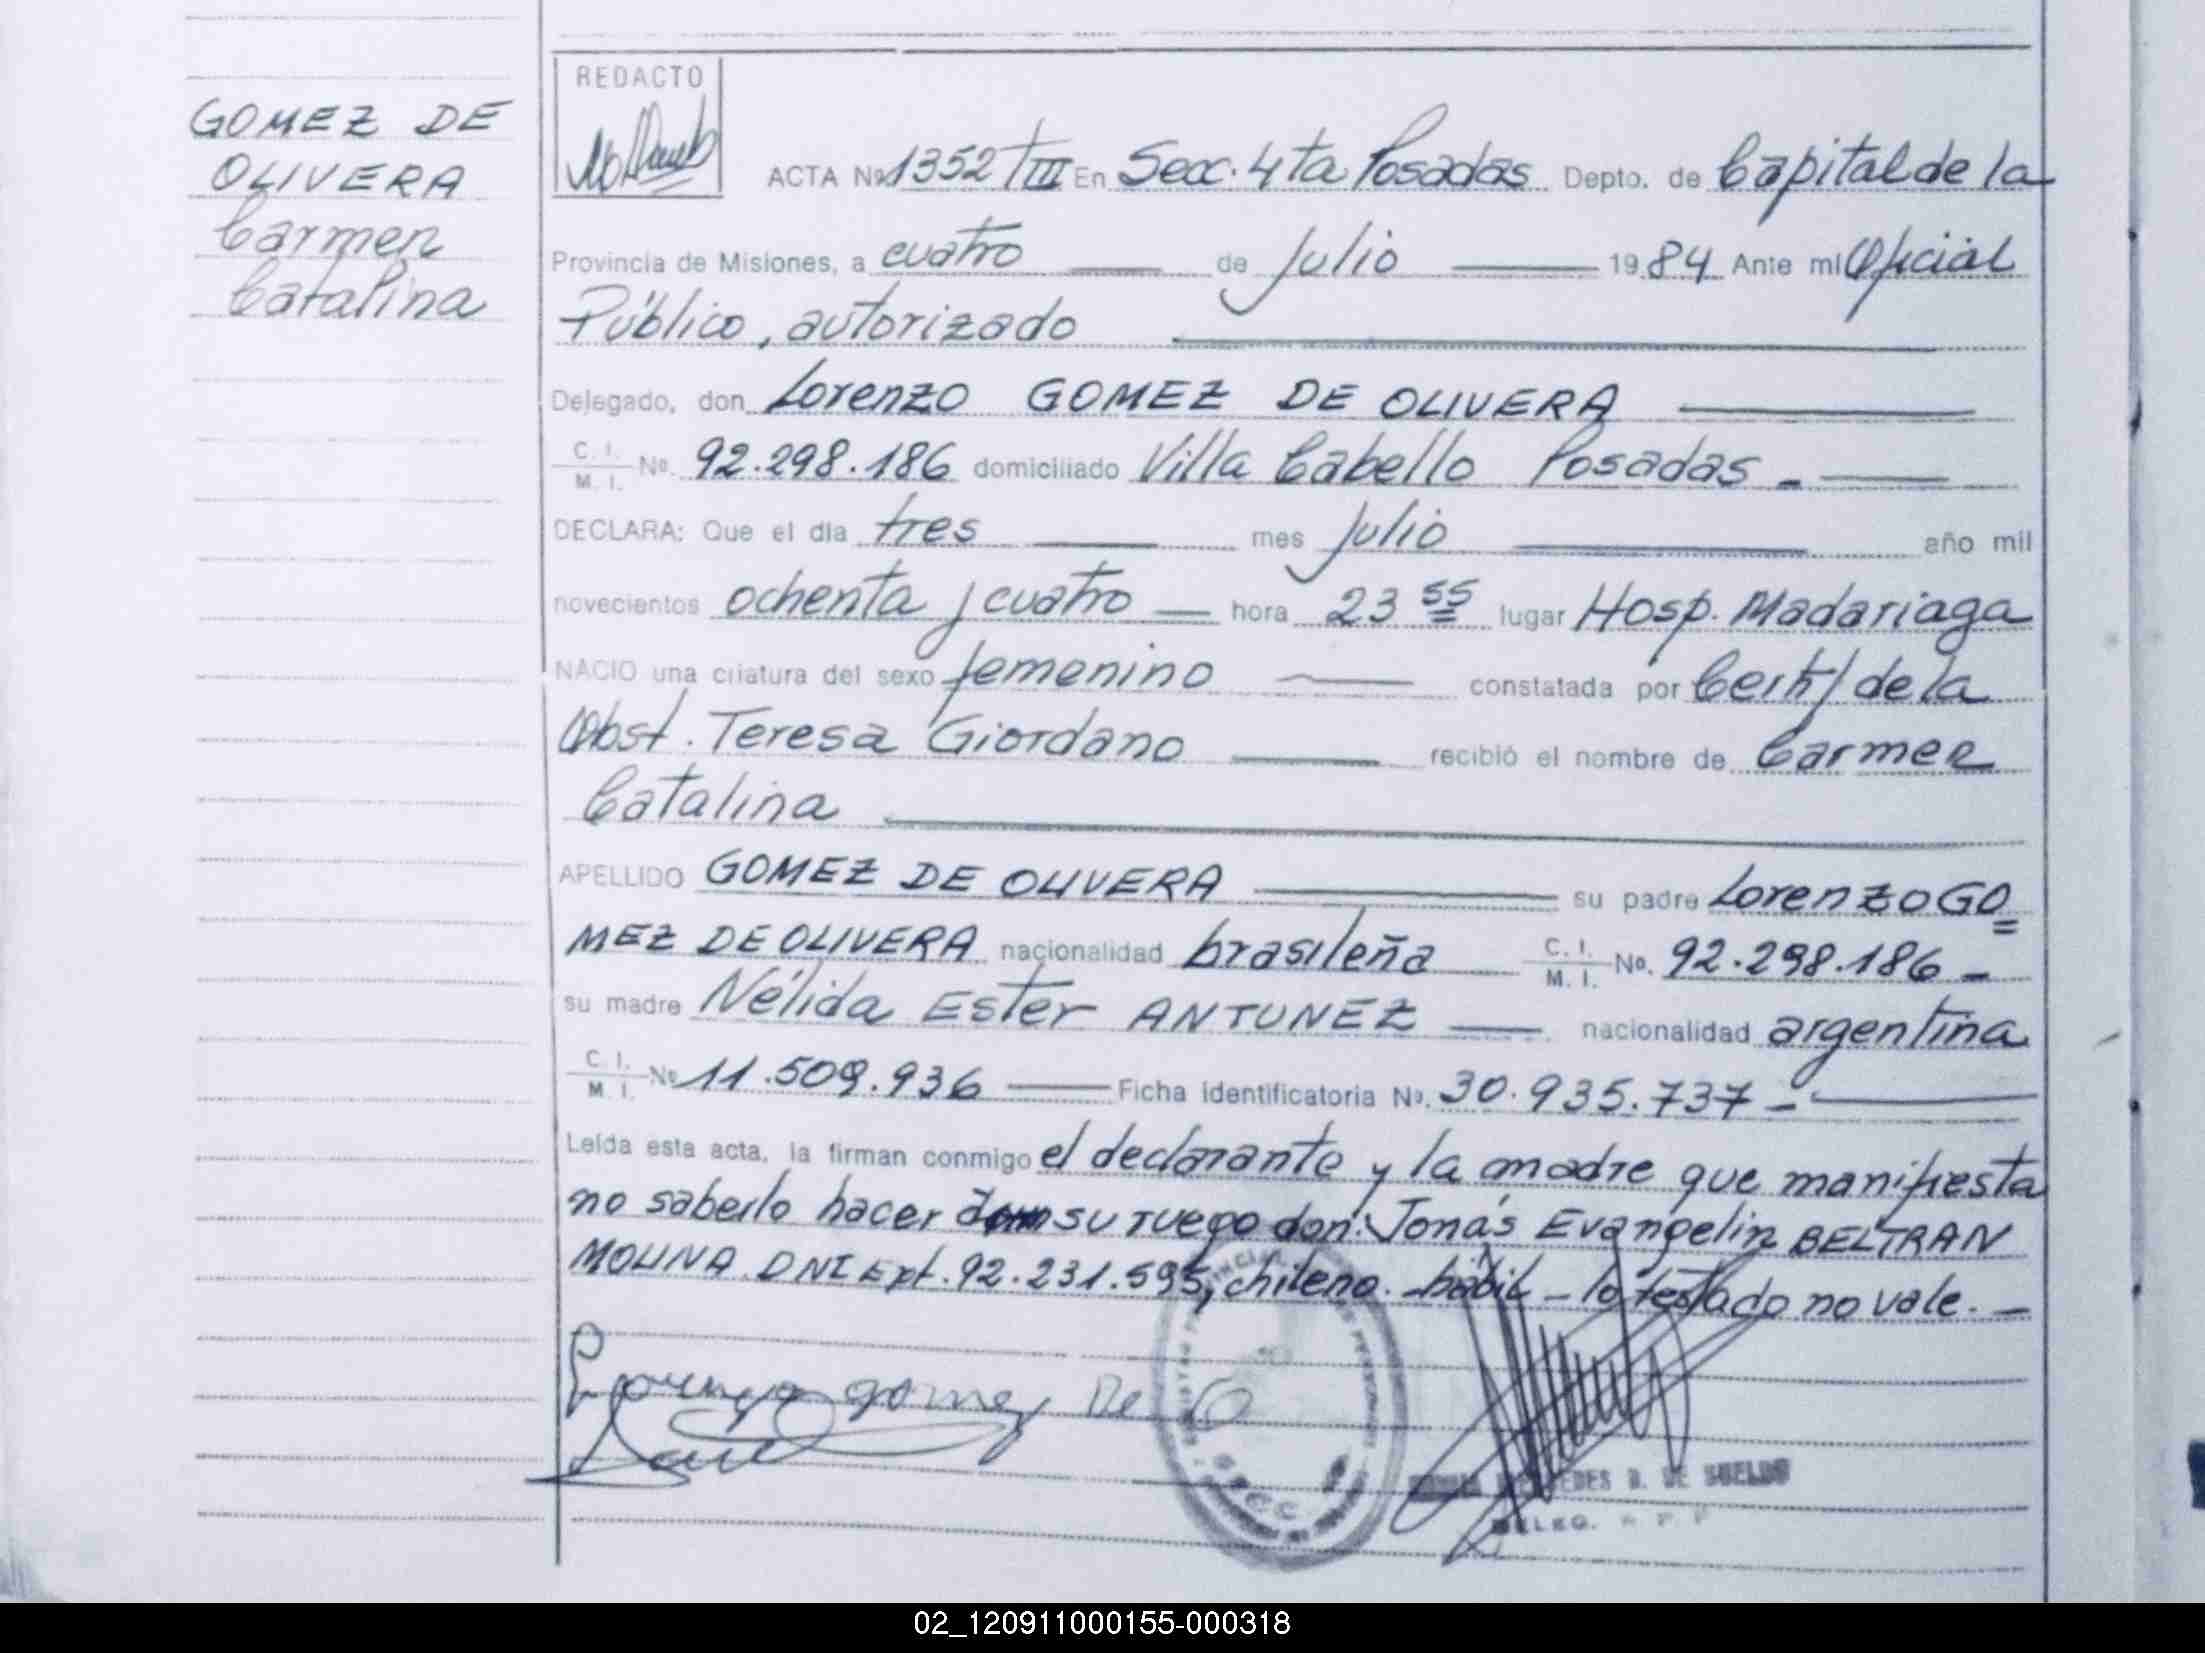 GOMEZ DE
OLIVERA
Carmen
Catalina
REDACTO
ACTA Nº 1352 T/III En Secc. 4ta Posadas Depto. de Capital de la
Provincia de Misiones, a cuatro de Julio 1984 Ante mi Oficial
Público, autorizado
Delegado, don Lorenzo GOMEZ DE OLIVERA
C. I. / M. I. Nº. 92.298.186 domiciliado Villa Cabello Posadas -
DECLARA: Que el día tres mes Julio año mil
novecientos ochenta y cuatro hora 23 55 lugar Hosp. Madariaga
NACIO una criatura del sexo femenino constatada por Certf/ de la
Obst. Teresa Giordano recibió el nombre de Carmen
Catalina
APELLIDO GOMEZ DE OLIVERA su padre Lorenzo GO
MEZ DE OLIVERA nacionalidad brasileña C. I. / M. I. Nº. 92.298.186 -
su madre Nélida Ester ANTUNEZ nacionalidad argentina
C. I. / M. I. Nº 11.509.936 Ficha identificatoria Nº. 30.935.737 -
Leída esta acta, la firman conmigo el declarante y la madre que manifiesta
no saberlo hacer a su ruego don: Jonás Evangelin BELTRAN
MOLINA DNI Ext. 92.231.595, chileno. - hábil - lo testado no vale. -
Lorenzo gomez De O
DE SUELDO
DELEG.
02_120911000155-000318